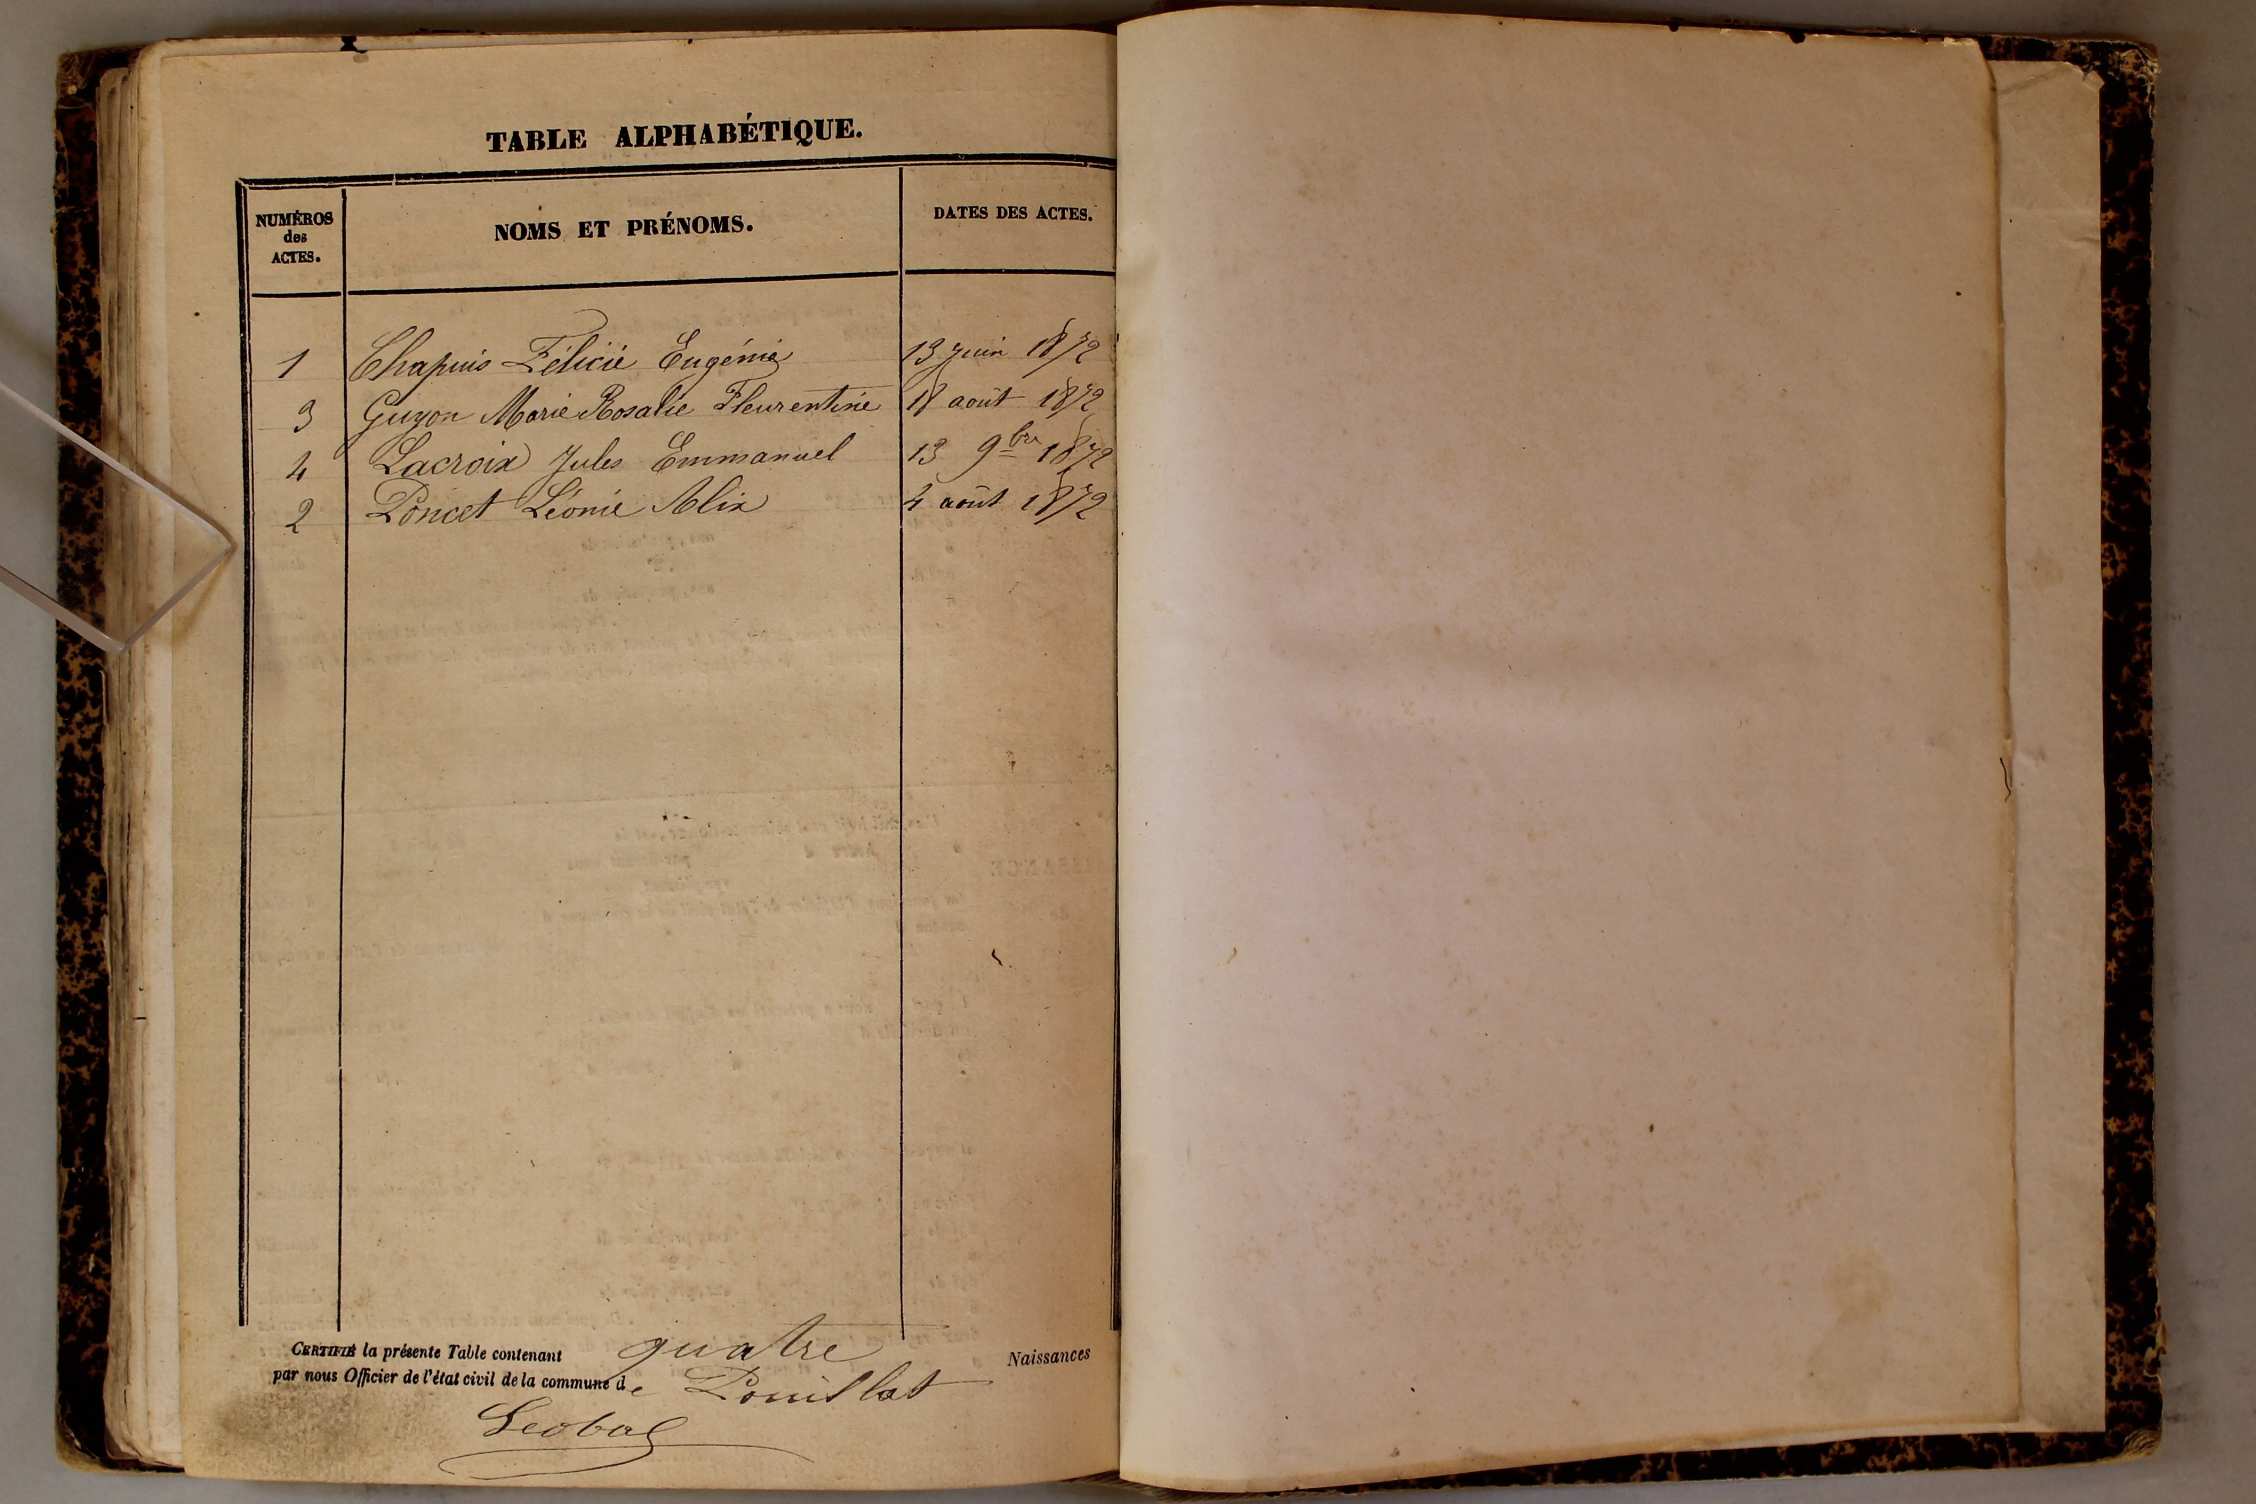 TABLE ALPHABÉTIQUE.
NUMÉROS des ACTES. NOMS ET PRÉNOMS. DATES DES ACTES.
1 Chapuis Félicie Eugénie 13 juin 1872
3 Guyon Marie Rosalie Fleurentine 18 août 1872
4 Lacroix Jules Emmanuel 13 9bre 1872
2 Poncet Léonie Alix 4 août 1872
CERTIFIÉ la présente Table contenant quatre Naissances
par nous Officier de l'état civil de la commune de Pouillat